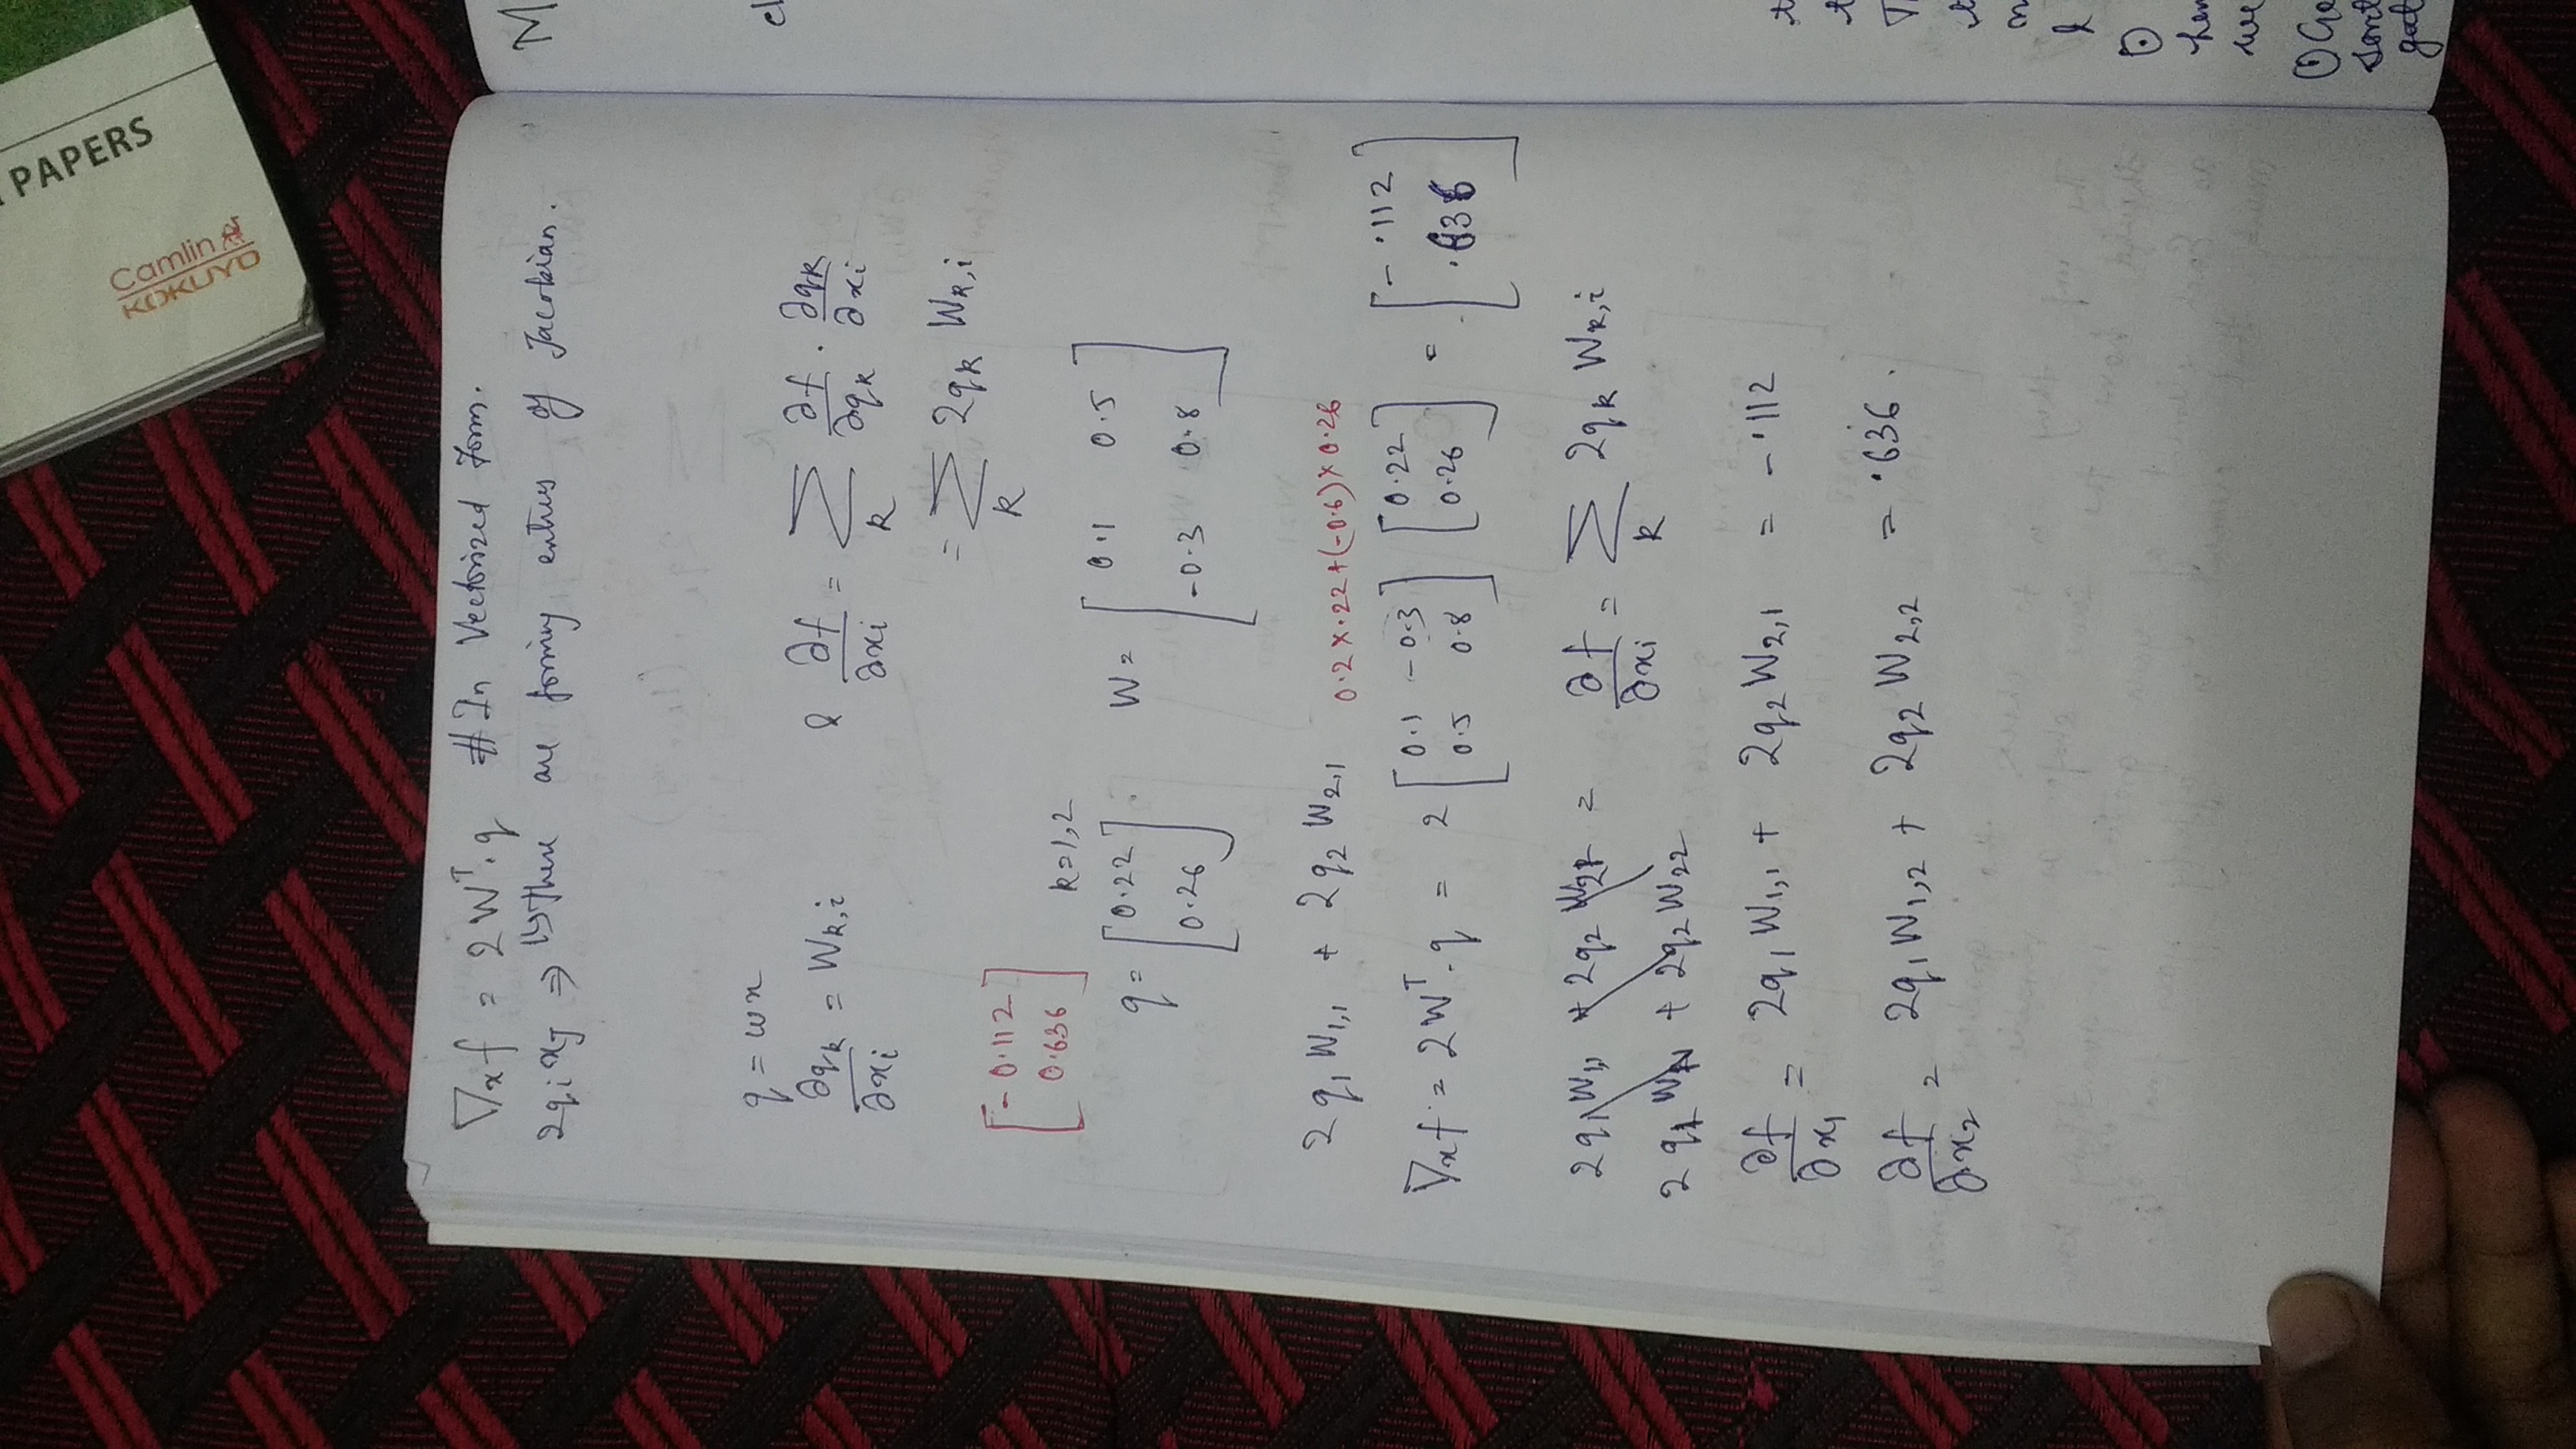 PAPERS
Camlin
KOKUYO
∇xf = 2Wᵀ.q # In Vectorized Form.
2qixj ⇒ ↳ These are forming entries of Jacobian.
q = wx
∂qk/∂xi = Wk,i & ∂f/∂xi = Σk ∂f/∂qk . ∂qk/∂xi
= Σk 2qk Wk,i
[-0.112
0.636]
k=1,2
q = [0.22
0.26]
W = [0.1 0.5
-0.3 0.8]
2q1W1,1 + 2q2W2,1 0.2×.22+(-0.6)×0.26
∇xf = 2Wᵀ.q = 2 [0.1 -0.3
0.5 0.8] [0.22
0.26] = [-.112
.636]
∂f/∂xi = Σk 2qk Wk,i
∂f/∂x1 = 2q1W1,1 + 2q2W2,1 = -.112
∂f/∂x2 = 2q1W1,2 + 2q2W2,2 = .636.
M